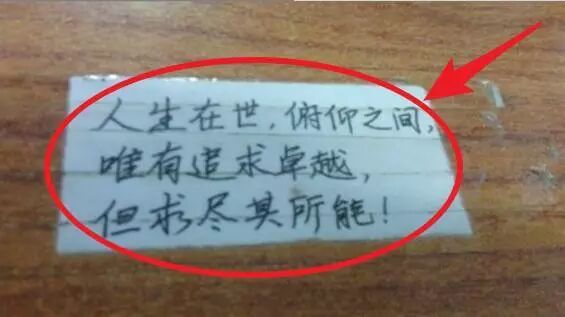 人生在世，俯仰之间，
唯有追求卓越，
但求尽其所能！